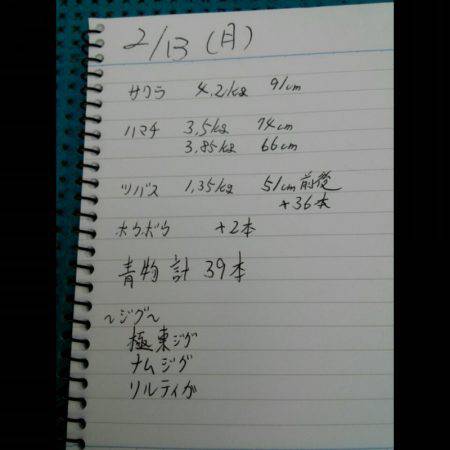 2/13 (月)
サワラ 4,2kg 91cm
ハマチ 3,5kg 74cm
3,85kg 66cm
ツバス 1,35kg 51cm前後
+36本
ホウボウ +2本
青物 計 39本
〜ジグ〜
極東ジグ
ナムジグ
リルティガ